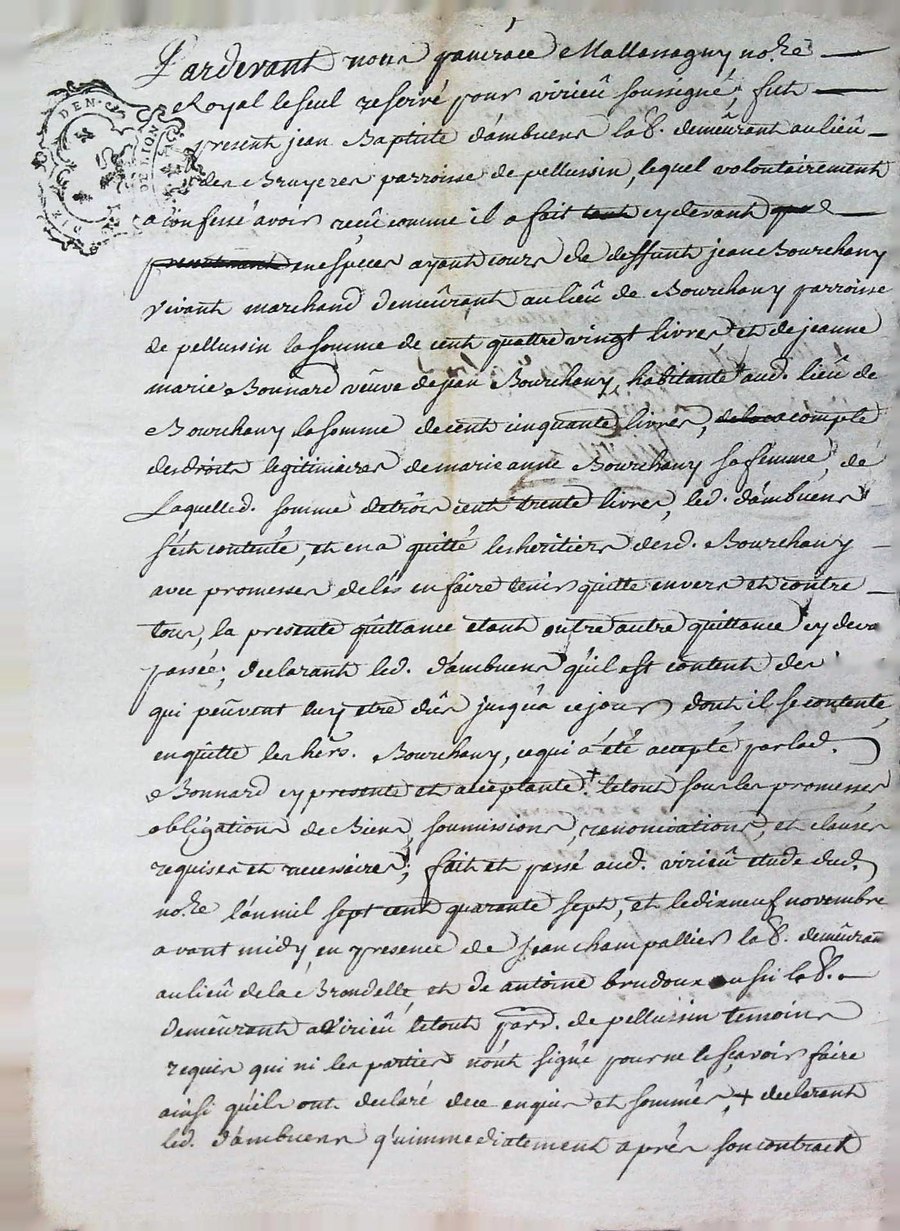 Pardevant nous pancrace Mallassagny no.re
Royal le seul reservé pour virieû soussigné, fut
present jean Baptiste dâmbuens lab.r demeûrant au lieû
des Bruyeres parroisse de pellussin, lequel volontairement
a confessé avoir receû comme il a fait tant cydevant que
presentement en espéces ayant cours de deffunt jean Bourchany
vivant marchand demeûrant au lieû de Bourchany parroisse
de pellussin la somme de cent quattre vingt livres, et de jeanne
marie Bonnard veûve de jean Bourchany, habitante aud. lieû de
Bourchany la somme de cent cinquante livres, acompte
des droits legitimaires de marie anne Bourchany sa femme, de
Laquelled. somme de trois cent trente livres, led. dâmbuens
s'est contenté, et en a quitté les heritiers desd. Bourchany
avec promesses de les en faire tenir quitte envers et contre
tous, la presente quittance etant outre autre quittance cy deva
passée; declarant led. dâmbuens qûil est content des
qui peûvent luy etre dûs jusqûa ce jour, dont il se contente
en quitte les hérs. Bourchany, ce qui a été accepté par lad.
Bonnard cy presente et acceptante + le tout sous les promesses
obligations de Biens, soumissions, renonciations, et clauses
requises et necessaires; fait et passé aud. virieû etude dud.
no.re l'an mil sept cent quarante sept, et le dix neuf novembre
avant midy, en presence de jean champallier lab.r demeûran
au lieû de la Brondelle et de antoine brudoux aussi lab.r
demeûrant a Virieû le tout parr. de pellussin temoins
requis qui ni les parties n'ônt signé pour ne le sçavoir faire
ainsi qûils ont declaré de ce enquis et sommés, + declarant
led. dâmbuens qu'immediatement aprés son contract
DEN.